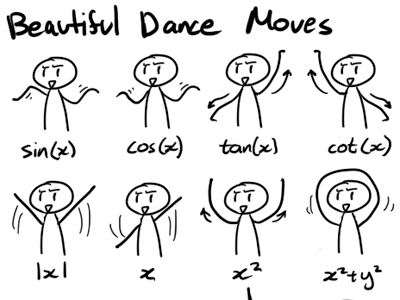 Beautiful Dance Moves
sin(x) cos(x) tan(x) cot(x)
|x| x x² x²+y²